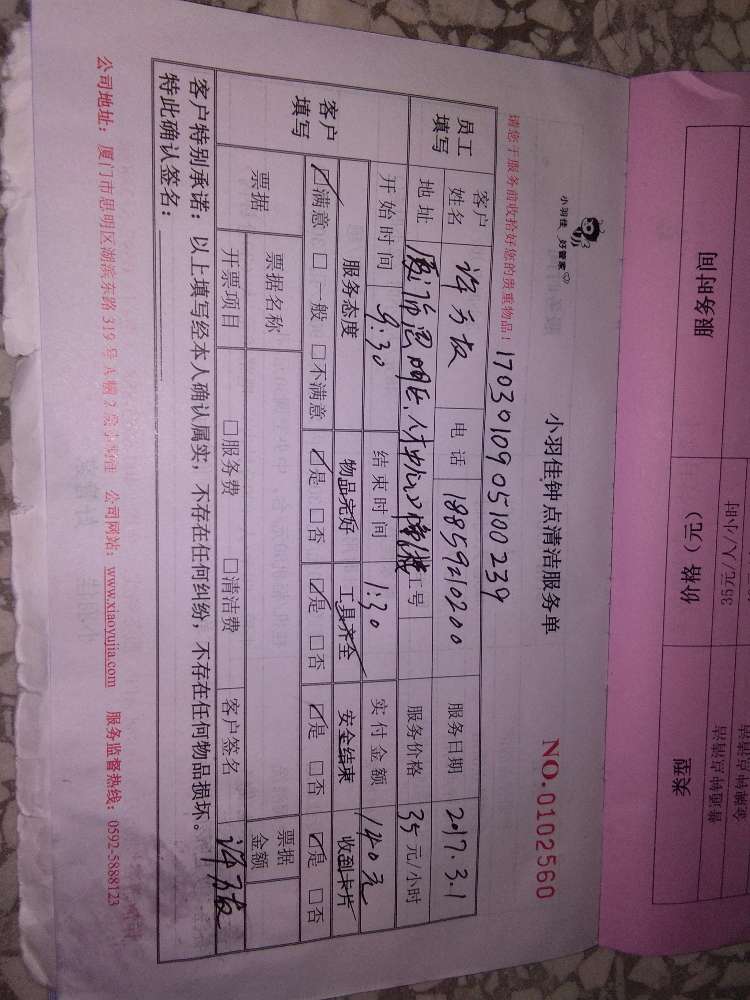 小羽佳 好管家
小羽佳钟点清洁服务单
NO.0102560
请您于服务前收拾好您的贵重物品！
17030109051 00239
员工填写
客户姓名 许方友 电话 18859210200 服务日期 2017.3.1
地址 工号 服务价格 35元/小时
开始时间 9:30 结束时间 1:30 实付金额 140元
客户填写
服务态度 物品完好 工具齐全 安全结束 收到卡片
☑满意 □一般 □不满意 ☑是 □否 ☑是 □否 ☑是 □否 ☑是 □否
票据 票据名称 票据金额
开票项目 □服务费 □清洁费 客户签名 许方友
客户特别承诺：以上填写经本人确认属实，不存在任何纠纷；不存在任何物品损坏。
特此确认签名：
公司地址：厦门市思明区湖滨东路319号A幢 公司网站：www.xiaoyujia.com 服务监督热线：0592-5888123
服务时间
价格（元） 35元/人/小时
类型 普通钟点清洁 金牌钟点清洁